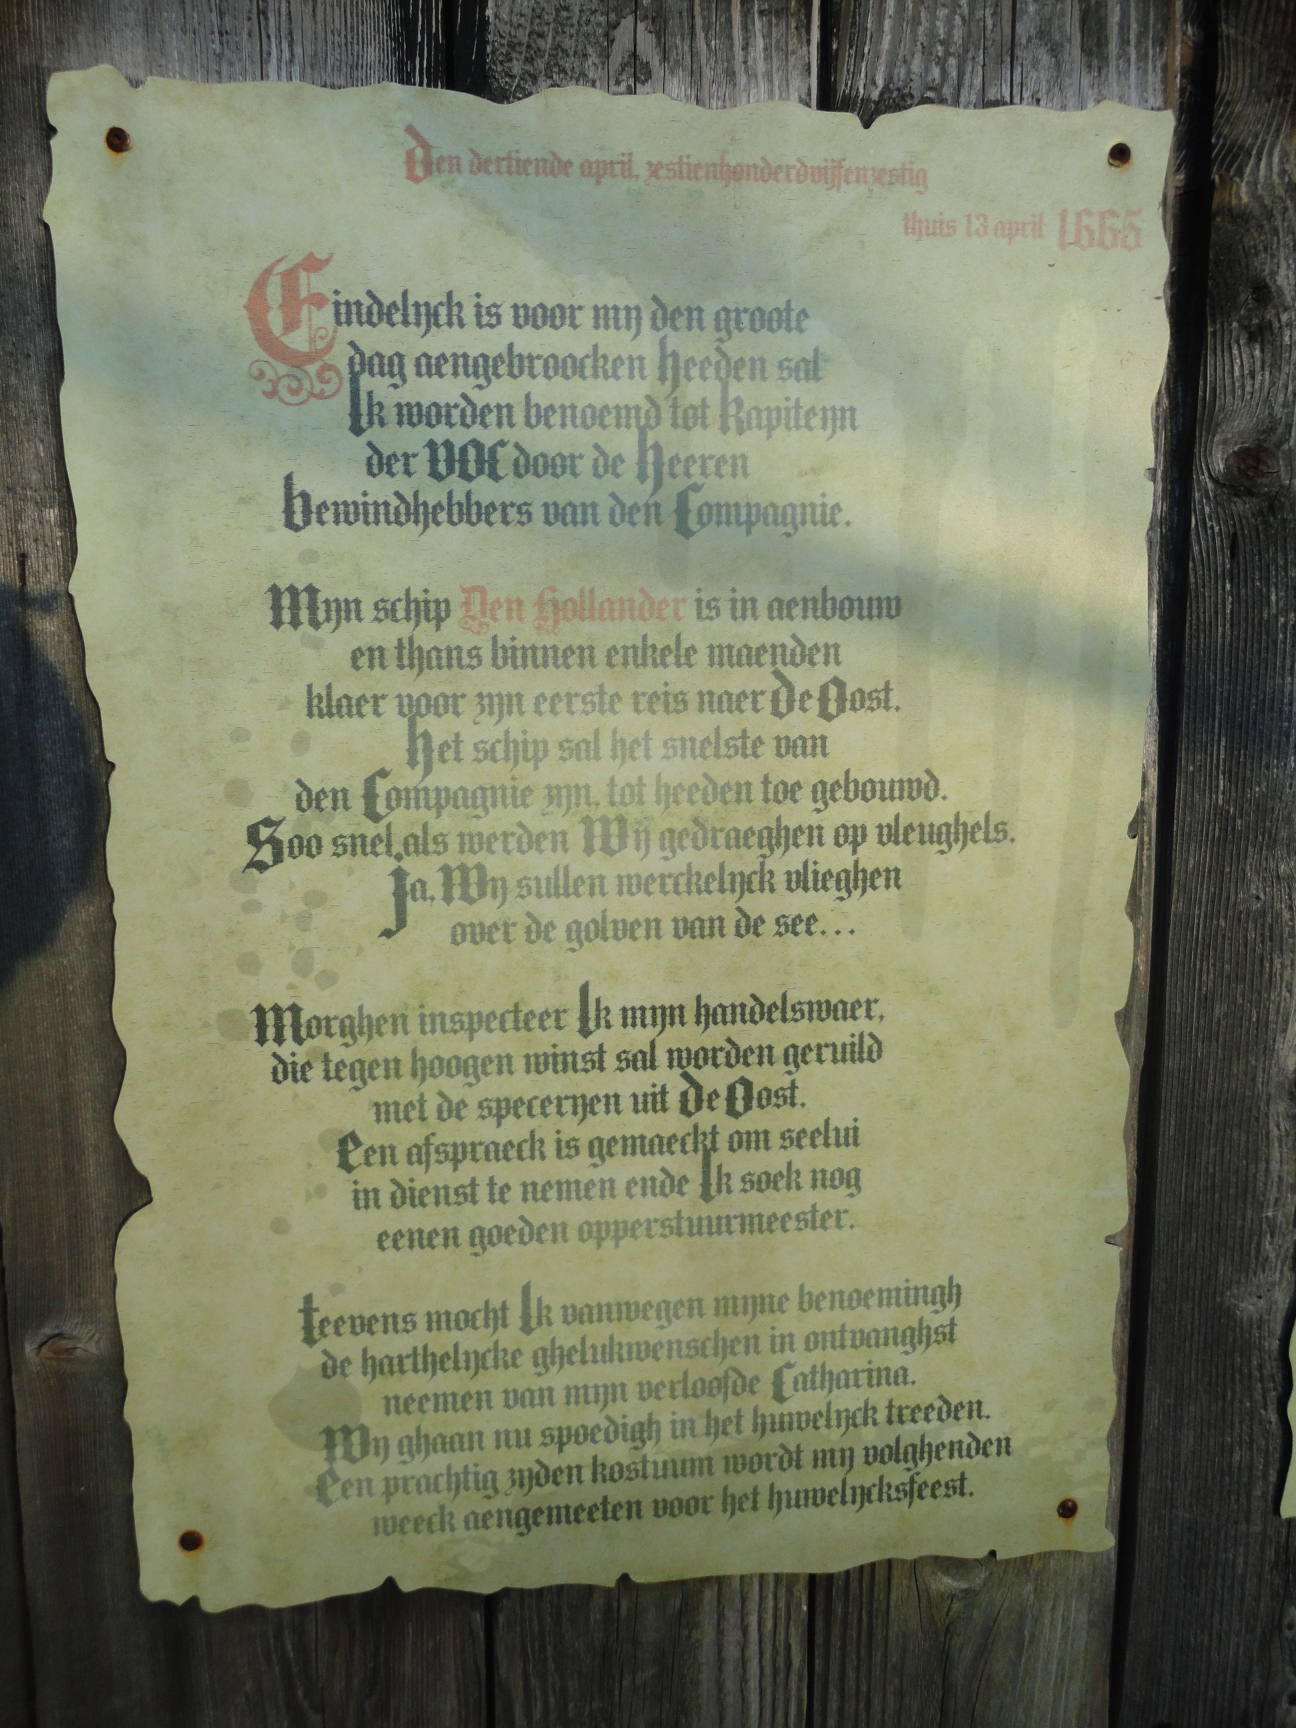 Den dertiende april, zestienhonderdvijfenzestig
thuis 13 april 1665
Eindelyck is voor my den groote
dag aengebroocken heeden sal
Ik worden benoemd tot Kapiteyn
der VOC door de Heeren
bewindhebbers van den Compagnie.
Myn schip Den Hollander is in aenbouw
en thans binnen enkele maenden
klaer voor zyn eerste reis naer De Oost.
Het schip sal het snelste van
den Compagnie zyn, tot heeden toe gebouwd.
Soo snel als werden Wy gedraeghen op vleughels.
Ja, Wy sullen werckelyck vlieghen
over de golven van de see...
Morghen inspecteer Ik myn handelswaer,
die tegen hoogen winst sal worden geruild
met de speceryen uit De Oost.
Een afspraeck is gemaeckt om seelui
in dienst te nemen ende Ik soek nog
eenen goeden opperstuurmeester.
teevens mocht Ik vanwegen myne benoemingh
de harthelycke ghelukwenschen in ontvanghst
neemen van myn verloofde Catharina.
Wy ghaan nu spoedigh in het huwelyck treeden.
Een prachtig zyden kostuum wordt my volghenden
weeck aengemeeten voor het huwelycksfeest.